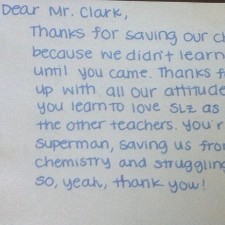 Dear Mr. Clark,
Thanks for saving our
because we didn't learn
until you came. Thanks
up with all our
you learn to love SLZ as
the other teachers. you'r
superman, saving us
chemistry and
so, yeah, thank you!